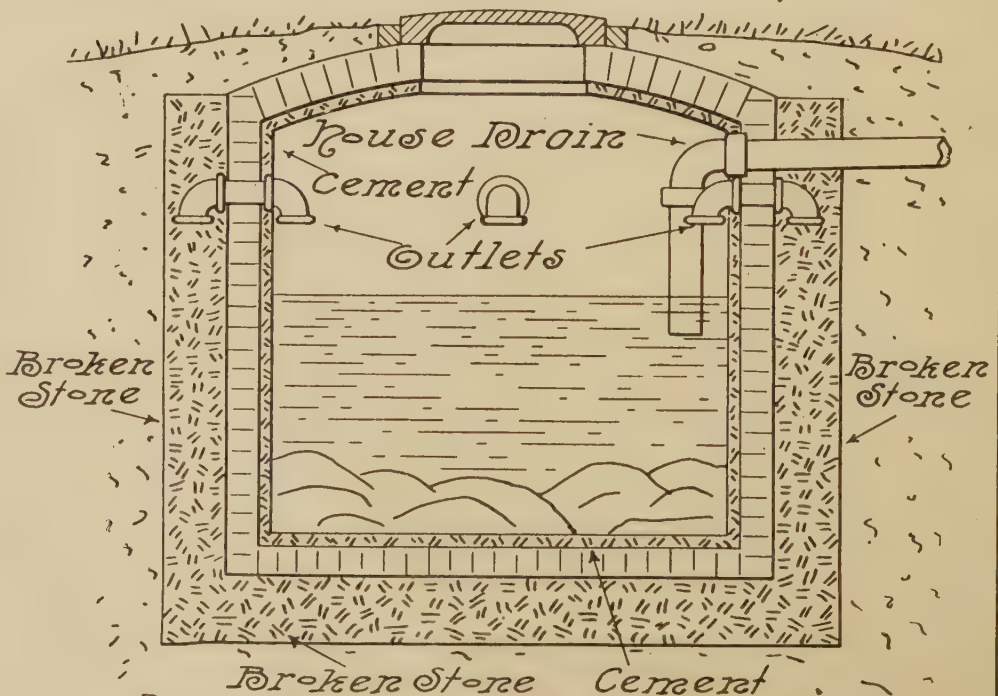 House Drain
Cement
Outlets
Broken
Stone
Broken
Stone
Broken Stone
Cement